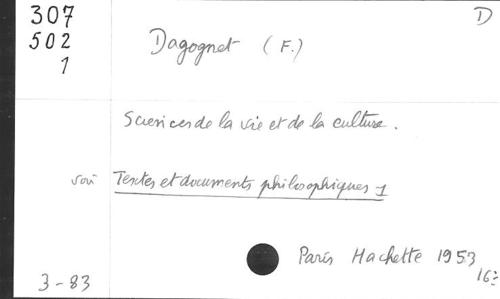 307
502
1
D
Dagognet (F.)
Sciences de la vie et de la culture.
voir Textes et documents philosophiques 1
Paris Hachette 1953
16:
3-83